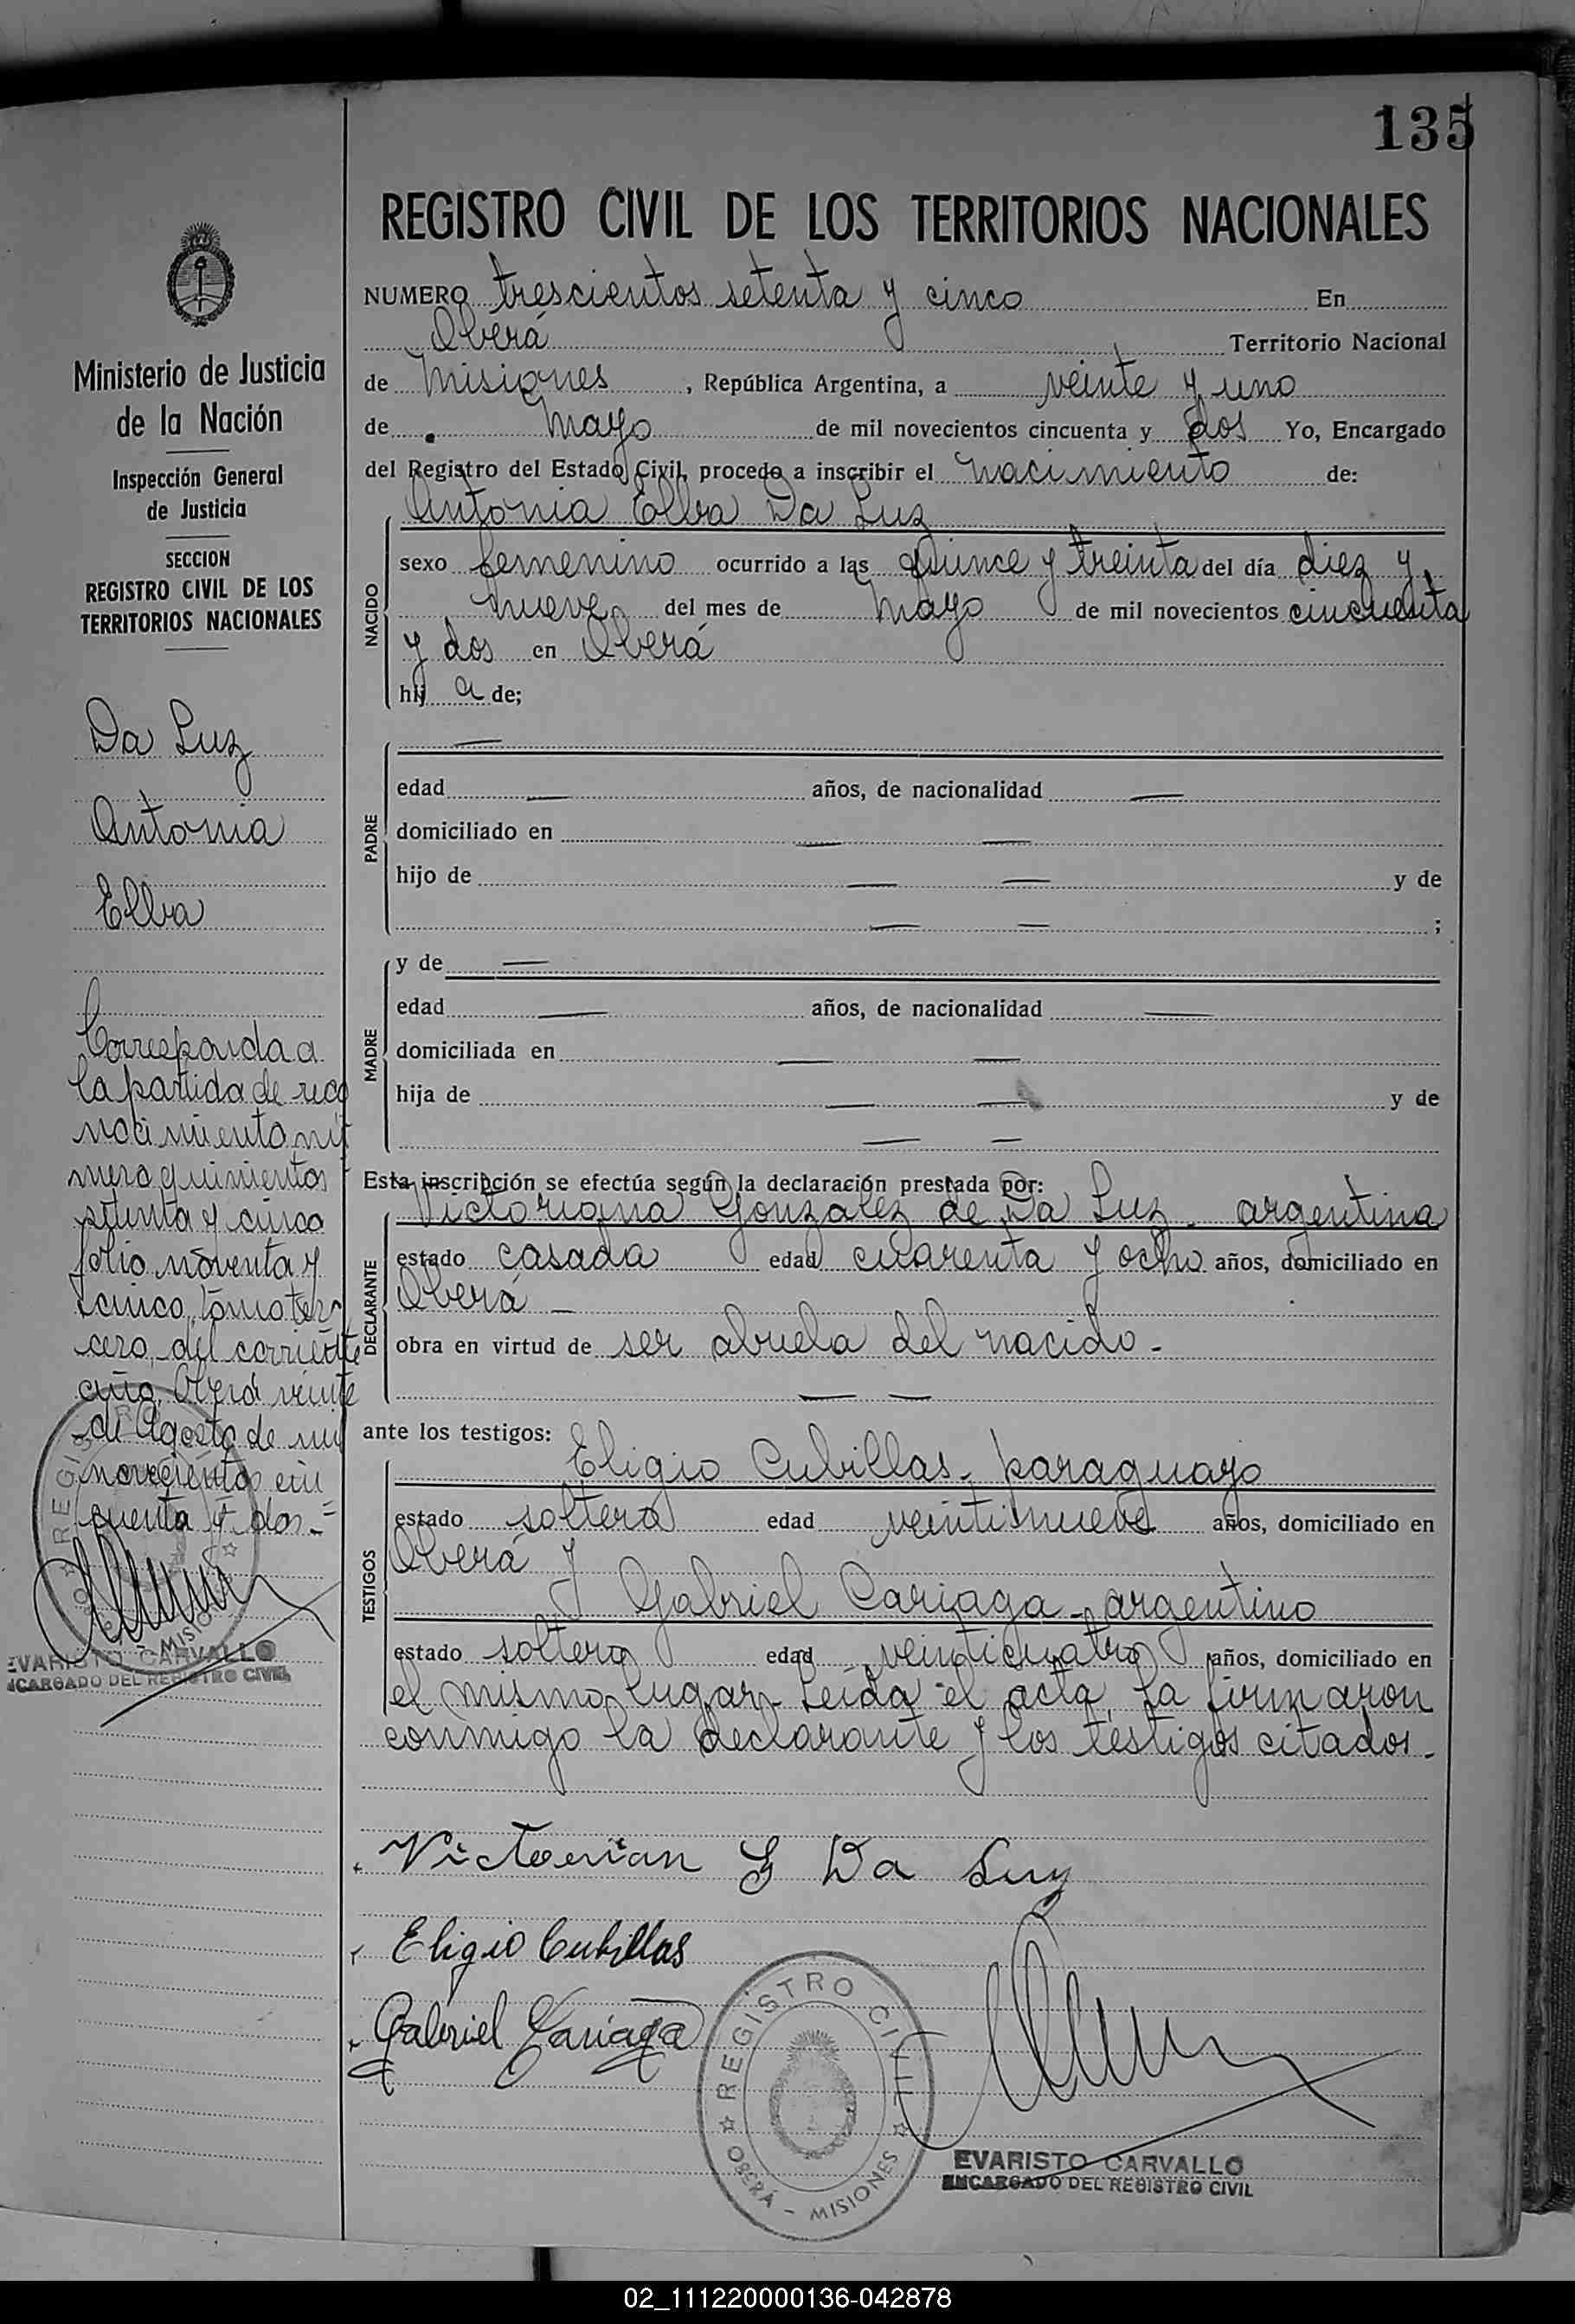 135
REGISTRO CIVIL DE LOS TERRITORIOS NACIONALES
Ministerio de Justicia
de la Nación
Inspección General
de Justicia
SECCION
REGISTRO CIVIL DE LOS
TERRITORIOS NACIONALES
Da Luz
Antonia
Elba
Corresponda a
la partida de reco
nocimiento nú
mero quinientos
setenta y cinco
folio noventa y
cinco, tomo ter
cero, del corriente
año. Oberá veinte
de Agosto de mil
novecientos cin
cuenta y dos.=
EVARISTO CARVALLO
NCARGADO DEL REGISTRO CIVIL
NUMERO trescientos setenta y cinco En
Oberá Territorio Nacional
de Misiones, República Argentina, a veinte y uno
de Mayo de mil novecientos cincuenta y dos Yo, Encargado
del Registro del Estado Civil, procedo a inscribir el nacimiento de:
Antonia Elba Da Luz
NACIDO
sexo femenino ocurrido a las quince y treinta del día diez y
nueve del mes de Mayo de mil novecientos cincuenta
y dos en Oberá
hij a de;
PADRE
—
edad — años, de nacionalidad —
domiciliado en — —
hijo de — — y de
— — ;
MADRE
y de —
edad — años, de nacionalidad —
domiciliada en — —
hija de — — y de
— —
Esta inscripción se efectúa según la declaración prestada por:
DECLARANTE
Victoriana Gonzalez de Da Luz - argentina
estado casada edad cuarenta y ocho años, domiciliado en
Oberá —
obra en virtud de ser abuela del nacido -
— —
ante los testigos:
TESTIGOS
Eligio Cubillas - paraguayo
estado soltero edad veintinueve años, domiciliado en
Oberá y
Gabriel Cariaga - argentino
estado soltero edad veinticuatro años, domiciliado en
el mismo lugar - Leída el acta, la firmaron
conmigo la declarante y los testigos citados.-
Victorian G Da Luz
Eligio Cubillas
Gabriel Cariaga
REGISTRO CIVIL
OBERÁ - MISIONES
EVARISTO CARVALLO
ENCARGADO DEL REGISTRO CIVIL
02_111220000136-042878